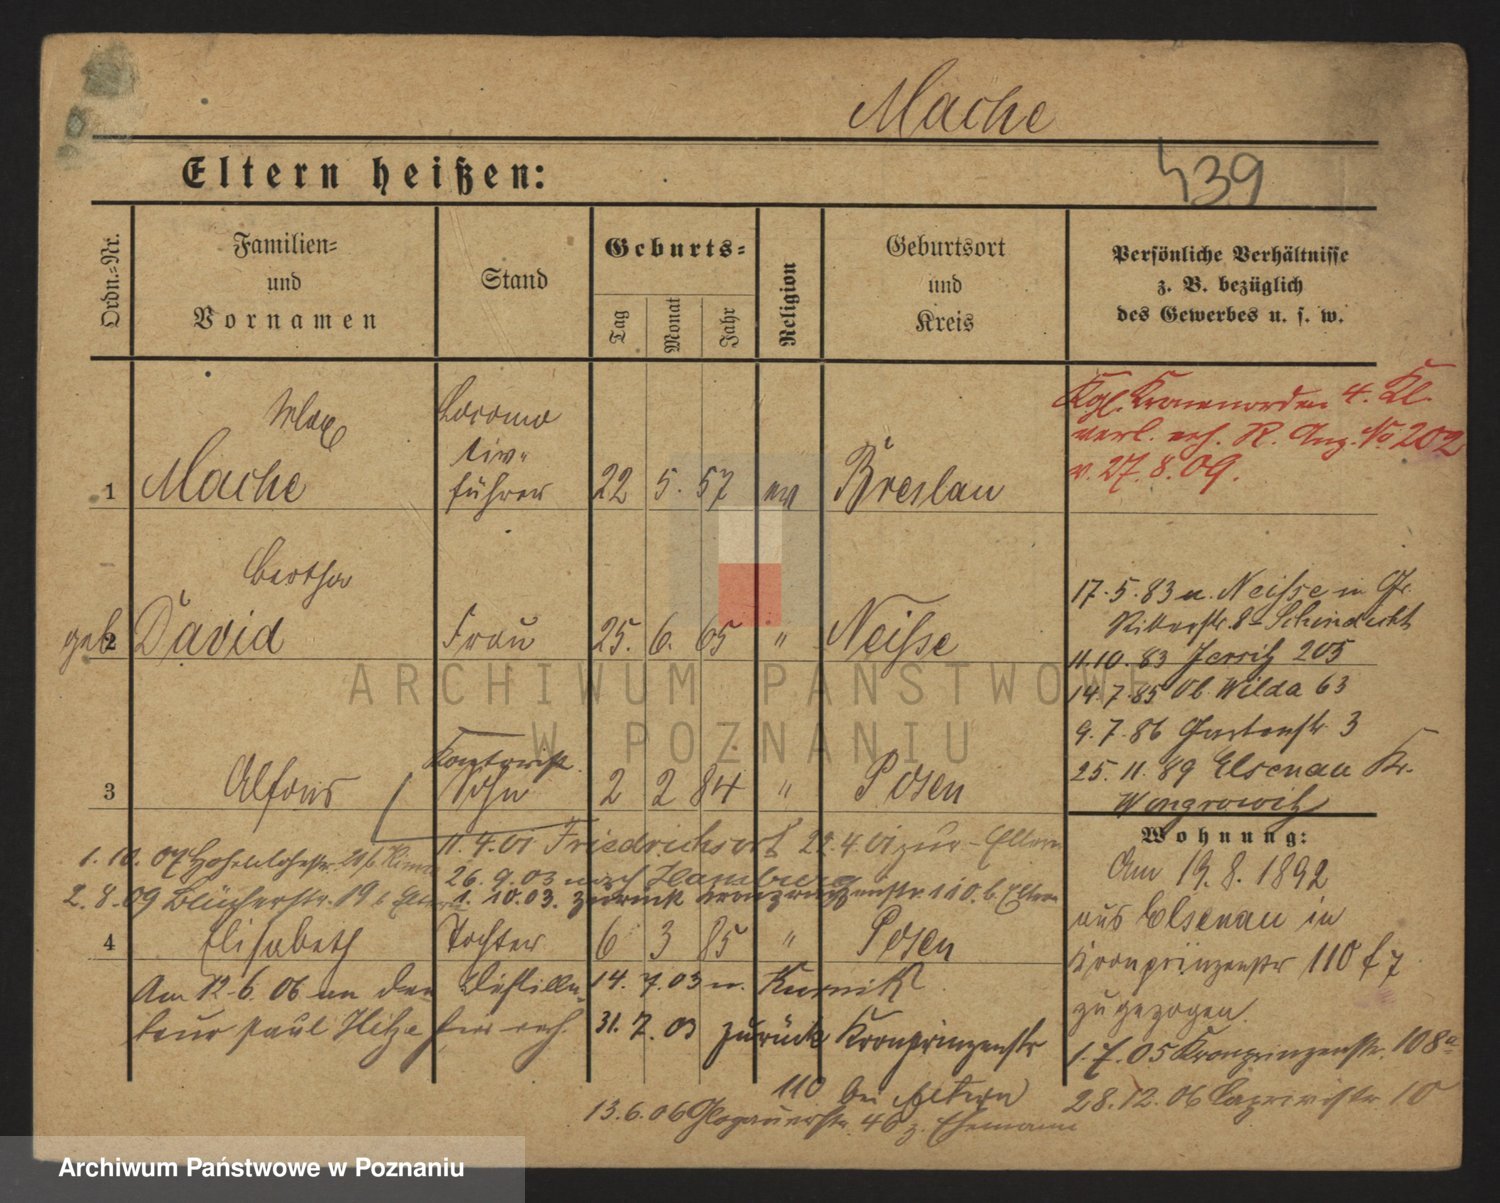 Mache
Eltern heißen:
439
Ordn.-Nr.
Familien-
und
Vornamen
Stand
Geburts-
Tag
Monat
Jahr
Religion
Geburtsort
und
Kreis
Persönliche Verhältnisse
z. B. bezüglich
des Gewerbes u. s. w.
Max
Locomo
tiv-
1 Mache führer 22 5. 57 ev Breslau
Kgl. Kronenorden 4. Kl.
verl. R. Anz. No 202
v. 27.8.09.
Bertha
geb. 2 David Frau 25. 6. 65 " Neisse
17.5.83 n. Neisse in Gr.
Ritterstr. 8
11.10.83 Jersitz 205
14.7.85 Ob. Wilda 63
9.7.86 Gartenstr. 3
25.11.89 Elsenau Kr.
Wongrowitz
3 Alfons Sohn 2 2 84 " Posen
11.4.01 Friedrichsort 22.4.01 zur Eltern
1.10.07 Hohenlohestr.
26.9.03 nach Hamburg
2.8.09 Blücherstr. 19
1.10.03. zurück Kronprinzenstr. 110. b. Eltern
4 Elisabeth Tochter 6 3 85 " Posen
Am 12.6.06 an den Destilla-
teur Paul Hitze hier verh.
14.7.03 n. Kurnik
31.7.03 zurück Kronprinzenstr
110 bei Eltern
13.6.06 Glogauerstr. 46 z. Ehemann
Wohnung:
Am 19.8.1892
aus Elsenau in
Kronprinzenstr 110 f 7
zugezogen.
1.7.05 Kronprinzenstr. 108a
28.12.06 Caprivistr. 10
ARCHIWUM PAŃSTWOWE
W POZNANIU
Archiwum Państwowe w Poznaniu